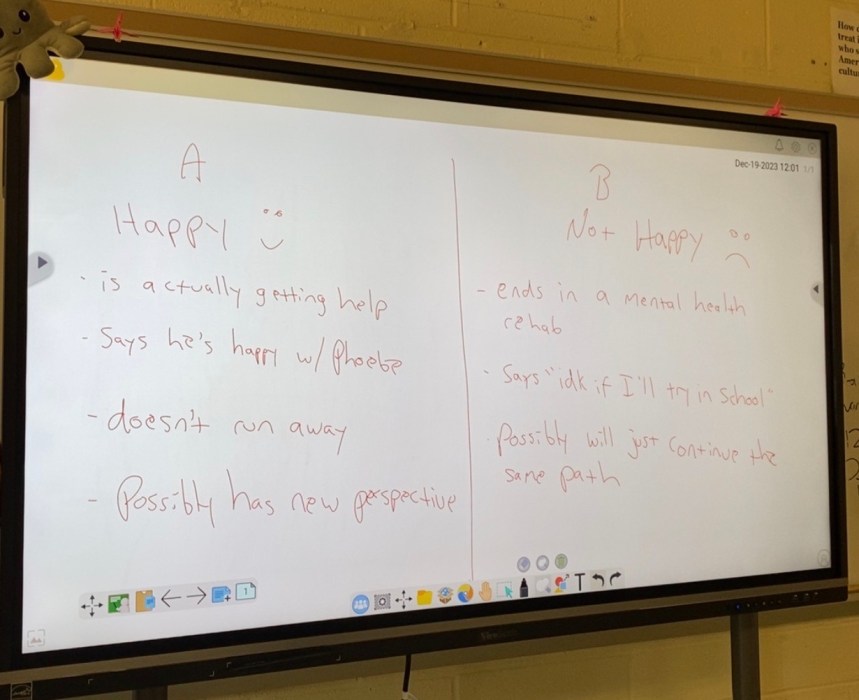 How
treat
who
Amer
cultu
Dec-19-2023 12:01 1/1
A
Happy
- is actually getting help
- Says he's happy w/ Phoebe
- doesn't run away
- Possibly has new perspective
B
Not Happy
- ends in a mental health
rehab
- Says "idk if I'll try in School"
Possibly will just continue the
same path
1
T